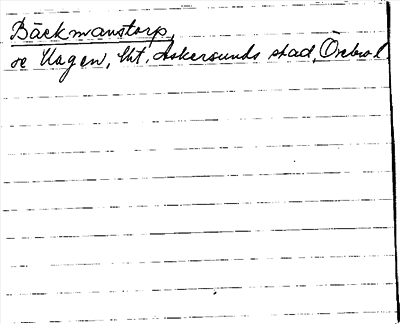 Bäckmanstorp,
se Hagen, lht, Askersunds stad, Örebro l